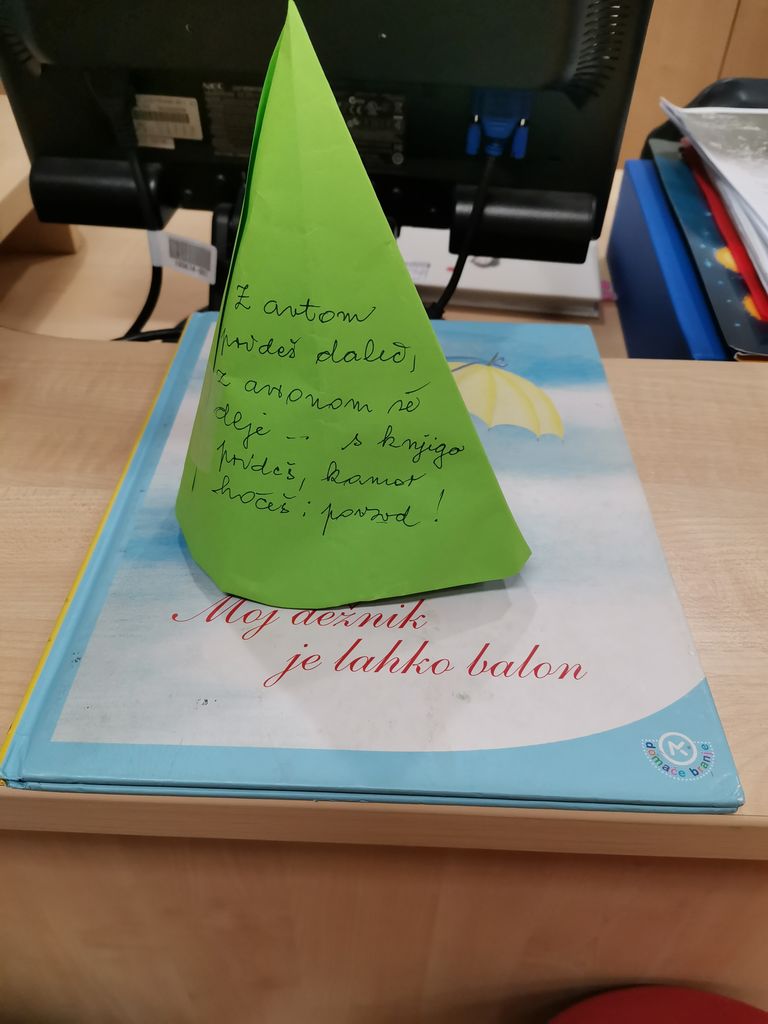 NEC
Z avtom
prideš daleč,
z avionom še
dlje ... s knjigo
prideš, kamor
hočeš : povsod !
Moj dežnik
je lahko balon
domače branje